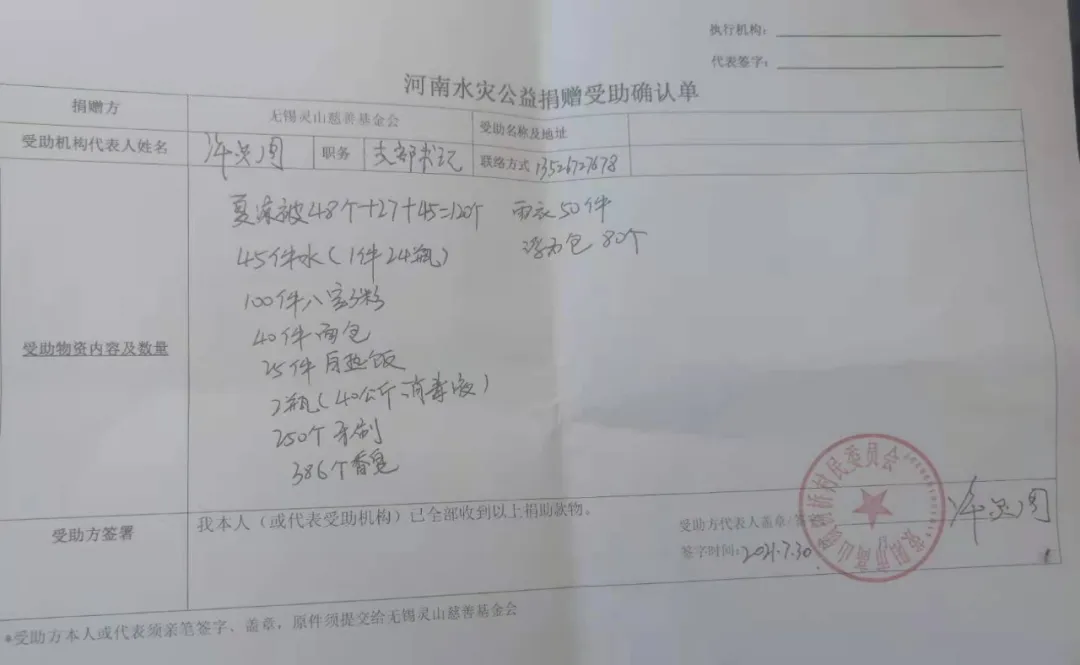 执行机构：
代表签字：
河南水灾公益捐赠受助确认单
捐赠方 无锡灵山慈善基金会 受助名称及地址
受助机构代表人姓名 职务 支部书记 联络方式 13526727678
受助物资内容及数量
夏凉被48个+27+45=120个 雨衣50件
45件水（1件24瓶） 80个
100件八宝粥
40件面包
25件自热饭
2瓶（40公斤消毒液）
250个牙刷
386个香皂
受助方签署 我本人（或代表受助机构）已全部收到以上捐助款物。
受助方代表人盖章/签
签字时间：2021.7.30
村民委员会
*受助方本人或代表须亲笔签字、盖章，原件须提交给无锡灵山慈善基金会